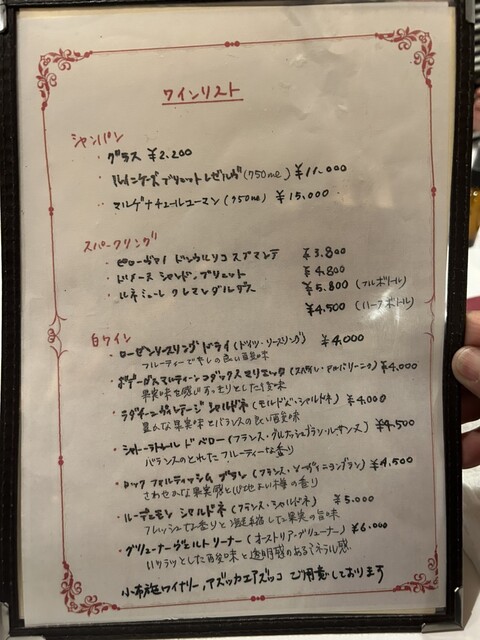 ワインリスト
シャンパン
・グラス ¥2,200
・ブリュット レゼルヴ (750ml) ¥11,000
・マルゲ ナチュールユーマン (750ml) ¥15,000
スパークリング
・ピローヴァノ ドゥウルソコ スプマンテ ¥3,800
・ドメーヌ シャンドン ブリュット ¥4,800
・ルネミューレ クレマンダルザス ¥5,800 (フルボトル)
¥4,500 (ハーフボトル)
白ワイン
・ローゼンリースリング ドライ (ドイツ・リースリング) ¥4,000
フルーティーで の良い酸味
・ボデーガス マルティーン コダックス マリエッタ (スペイン・アルバリーニョ) ¥4,000
果実味を感じすっきりとした後味
・ラダチーニヴィンテージ シャルドネ (モルドバ・シャルドネ) ¥4,000
豊んな果実味とバランスの良い酸味
・シャトーラトレル ド ベロー (フランス・ グルナッシュブラン・ルーサンヌ) ¥4,500
バランスのとれたフルーティーな香り
・ロック フォルティッシム ブラン (フランス・ソーヴィニヨンブラン) ¥4,500
さわやかな果実感と心地よい樽の香り
・ルーデュモン シャルドネ (フランス・シャルドネ) ¥5,000
フレッシュな香りと凝縮した果実の旨味
・グリューナーヴェルトリーナー (オーストリア・グリューナー) ¥6,000
いきいきとした酸味と透明感のあるミネラル感
小布施ワイナリー,アズッカエアズッコ ご用意しております